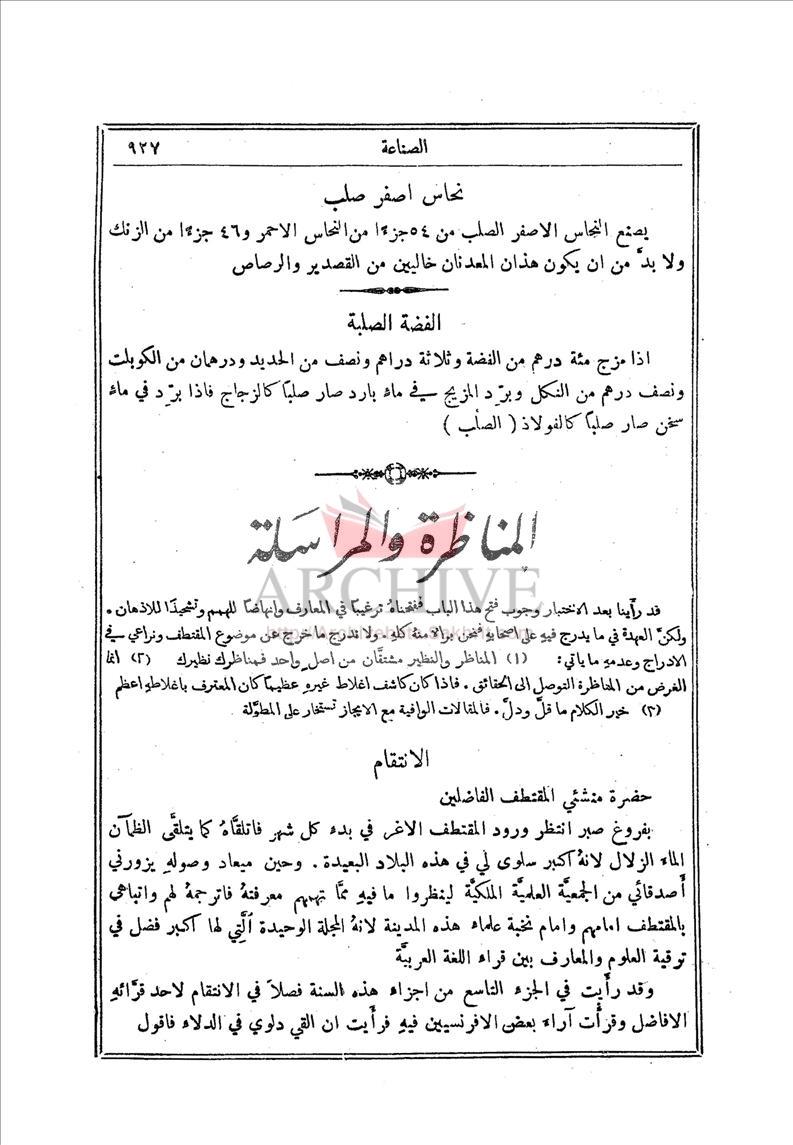 الصناعة
٩٢٧
نحاس اصفر صلب
يصنع النحاس الاصفر الصلب من ٥٤ جزءًا من النحاس الاحمر و٤٦ جزءًا من الزنك
ولا بدَّ من ان يكون هذان المعدنان خاليين من القصدير والرصاص
الفضة الصلبة
اذا مزج مئة درهم من الفضة وثلاثة دراهم ونصف من الحديد ودرهمان من الكوبلت
ونصف درهم من النكل وبرِّد المزيج في ماء بارد صار صلبًا كالزجاج فاذا برِّد في ماء
سخن صار صلبًا كالفولاذ ( الصلب )
المناظرة والمراسلة
ARCHIVE
قد رأينا بعد الاختبار وجوب فتح هذا الباب ففتحناهُ ترغيبًا في المعارف وانهاضًا للهمم وتشحيذًا للاذهان .
ولكنَّ العهدة في ما يدرج فيهِ على اصحابهِ فنحن براءٌ منهُ كلهِ . ولا ندرج ما خرج على موضوع المقتطف ونراعي في
الادراج وعدمهِ ما ياتي : (١) المناظر والنظير مشتقَّان من اصل واحد فمناظرك نظيرك (٢) انما
الغرض من المناظرة التوصل الى الحقائق . فاذا كان كاشف اغلاط غيرهِ عظيمًا كان المعترف باغلاطهِ اعظم
(٣) خير الكلام ما قلَّ ودلَّ . فالمقالات الوافية مع الايجاز تستخار على المطوَّلة
الانتقام
حضرة منشئي المقتطف الفاضلين
بفروغ صبر انتظر ورود المقتطف الاغر في بدء كل شهر فاتلقاهُ كما يتلقَّى الظمآن
الماء الزلال لانهُ اكبر سلوى لي في هذه البلاد البعيدة . وحين ميعاد وصولهِ يزورني
أصدقائي من الجمعيَّة العلميَّة الملكيَّة لينظروا ما فيهِ ممَّا تهمهم معرفتهُ فاترجمهُ لهم واتباهى
بالمقتطف امامهم وامام نخبة علماء هذه المدينة لانهُ المجلة الوحيدة الَّتي لها اكبر فضل في
ترقية العلوم والمعارف بين قراء اللغة العربيَّة
وقد رأَيت في الجزء التاسع من اجزاء هذه السنة فصلاً في الانتقام لاحد قرَّائهِ
الافاضل وقرأت آراء بعض الافرنسيين فيهِ فرأَيت ان القي دلوي في الدلاء فاقول